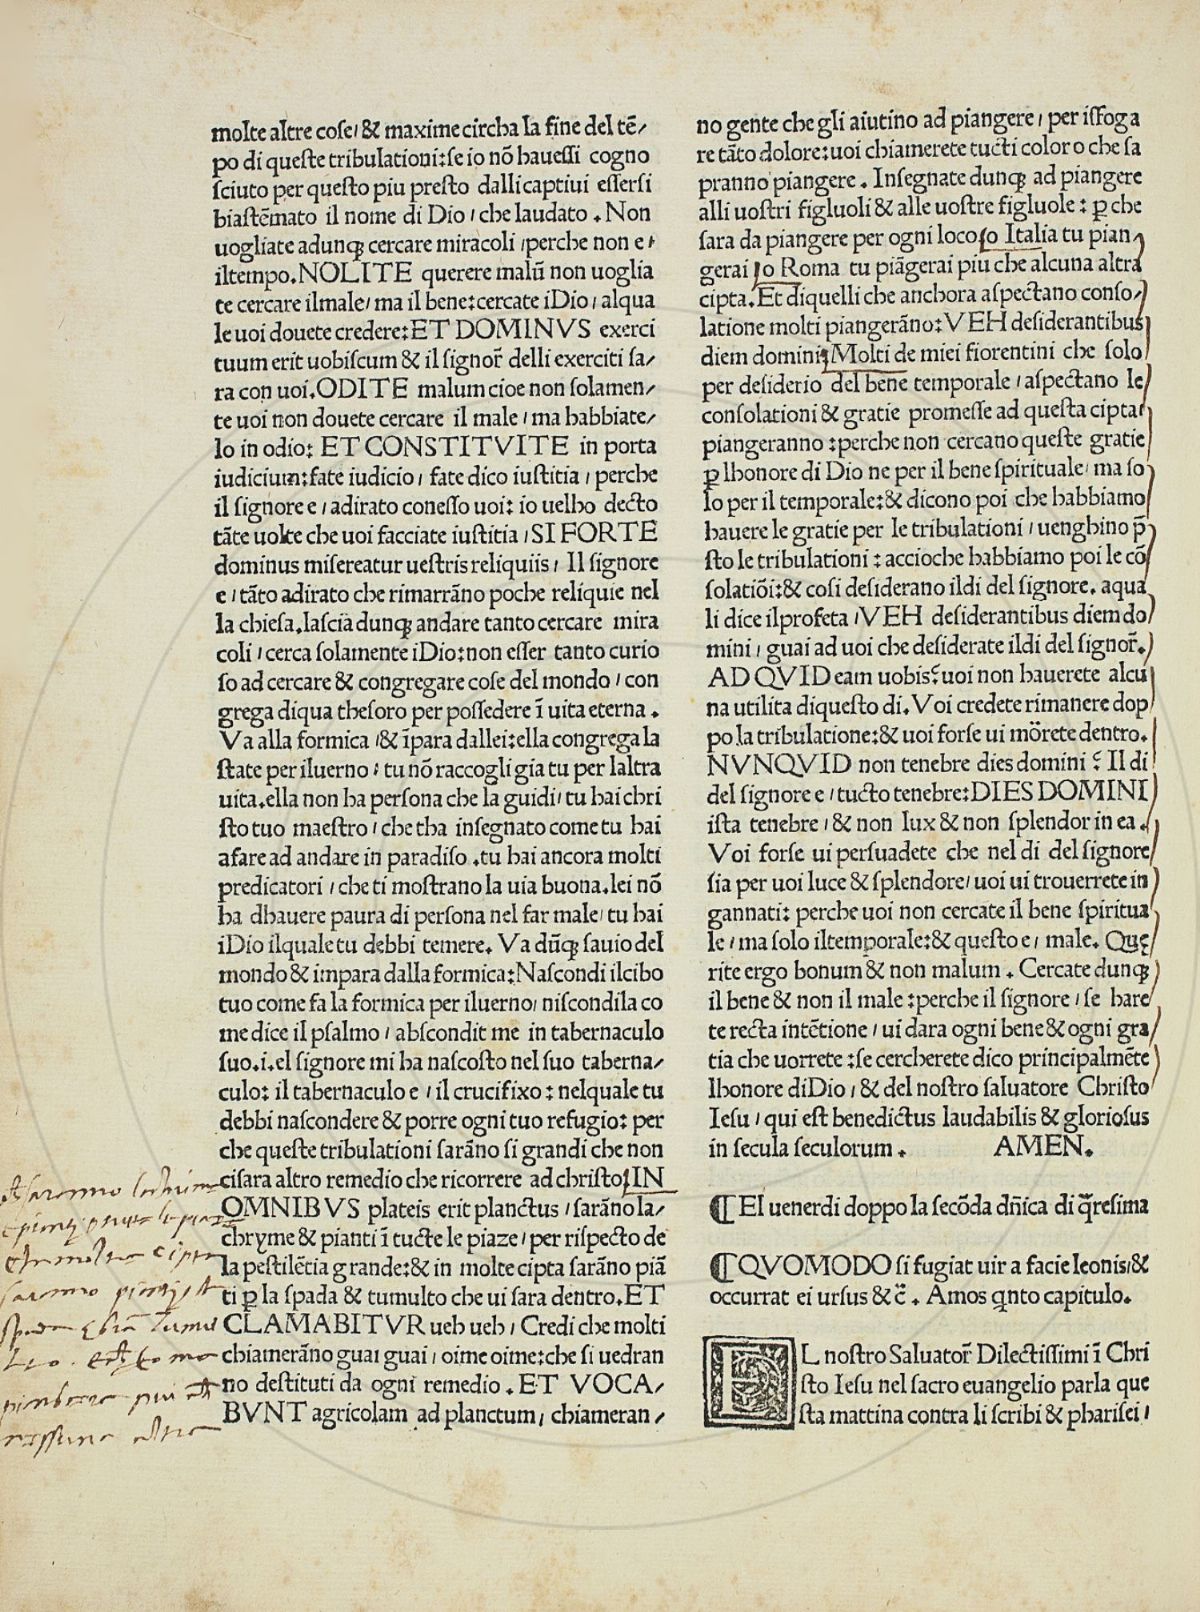 molte altre cose/ & maxime circha la fine del tē/
po di queste tribulationi:se io nō hauessi cogno
sciuto per questo piu presto dalli captiui essersi
biastēmato il nome di Dio / che laudato . Non
uogliate adunqꝫ cercare miracoli /perche non e/
iltempo.NOLITE querere malū non uoglia
te cercare ilmale/ ma il bene:cercate iDio / alqua
le uoi douete credere:ET DOMINVS exerci
tuum erit uobiscum & il signor̄ delli exerciti sa/
ra con uoi.ODITE malum cioe non solamen/
te uoi non douete cercare il male / ma habbiate/
lo in odio: ET CONSTITVITE in porta
iudicium:fate iudicio / fate dico iustitia / perche
il signore e / adirato conesso uoi: io uelho decto
tāte uolte che uoi facciate iustitia /SI FORTE
dominus misereatur uestris reliquiis / Il signore
e / tāto adirato che rimarrāno poche reliquie nel
la chiesa.lascia dunqꝫ andare tanto cercare mira
coli / cerca solamente iDio:non esser tanto curio
so ad cercare & congregare cose del mondo / con
grega diqua thesoro per possedere ī uita eterna .
Va alla formica /& īpara dallei:ella congrega la
state per iluerno / tu nō raccogli gia tu per laltra
uita.ella non ha persona che la guidi/ tu hai chri
sto tuo maestro / che tha insegnato come tu hai
afare ad andare in paradiso .tu hai ancora molti
predicatori / che ti mostrano la uia buona.lei nō
ha dhauere paura di persona nel far male/ tu hai
iDio ilquale tu debbi temere. Va dūqꝫ sauio del
mondo & impara dalla formica:Nascondi ilcibo
tuo come fa la formica per iluerno/ niscondila co
me dice il psalmo / abscondit me in tabernaculo
suo.i.el signore mi ha nascosto nel suo taberna/
culo: il tabernaculo e / il crucifixo : nelquale tu
debbi nascondere & porre ogni tuo refugio: per
che queste tribulationi sarāno si grandi che non
cisara altro remedio che ricorrere ad christo/IN
OMNIBVS plateis erit planctus / sarāno la/
chryme & pianti ī tucte le piaze / per rispecto de
la pestilētia grande:& in molte cipta sarāno piā
ti ꝑ la spada & tumulto che ui sara dentro.ET
CLAMABITVR ueh ueh / Credi che molti
chiamerāno guai guai / oime oime:che si uedran
no destituti da ogni remedio . ET VOCA/
BVNT agricolam ad planctum/ chiameran /
saranno
molte cipta
saranno
spada
nissuna altra
no gente che gli aiutino ad piangere / per isfoga
re tāto dolore:uoi chiamerete tucti coloro che sa
pranno piangere . Insegnate dunqꝫ ad piangere
alli uostri figluoli & alle uostre figluole : ꝑ che
sara da piangere per ogni loco/o Italia tu pian/
gerai /o Roma tu piāgerai piu che alcuna altra
cipta.Et diquelli che anchora aspectano conso/
latione molti piangerāno:VEH desiderantibus
diem domini/Molti de miei fiorentini che solo
per desiderio del bene temporale / aspectano le
consolationi & gratie promesse ad questa cipta
piangeranno :perche non cercano queste gratie
ꝑ lhonore di Dio ne per il bene spirituale/ ma so
lo per il temporale:& dicono poi che habbiamo
hauere le gratie per le tribulationi / uenghino p̄
sto le tribulationi : accioche habbiamo poi le cō
solatiōi:& cosi desiderano ildi del signore. aqua
li dice ilprofeta /VEH desiderantibus diem do
mini / guai ad uoi che desiderate ildi del signor̄.
AD QVID eam uobis? uoi non hauerete alcu
na utilita diquesto di.Voi credete rimanere dop
po la tribulatione:& uoi forse ui mōrete dentro.
NVNQVID non tenebre dies domini ? Il di
del signore e / tucto tenebre:DIES DOMINI
ista tenebre / & non lux & non splendor in ea .
Voi forse ui persuadete che nel di del signore
sia per uoi luce & splendore/ uoi ui trouerrete in
gannati: perche uoi non cercate il bene spiritua
le / ma solo iltemporale:& questo e / male. Quę
rite ergo bonum & non malum . Cercate dunqꝫ
il bene & non il male :perche il signore / se hare
te recta intētione / ui dara ogni bene & ogni gra
tia che uorrete :se cercherete dico principalmēte
lhonore diDio / & del nostro saluatore Christo
Iesu / qui est benedictus laudabilis & gloriosus
in secula seculorum . AMEN.
¶ El uenerdi doppo la secōda dn̄ica di qr̄esima
¶ QVOMODO si fugiat uir a facie leonis/&
occurrat ei ursus & c̄ . Amos qnto capitulo.
EL nostro Saluator̄ Dilectissimi ī Chri
sto Iesu nel sacro euangelio parla que
sta mattina contra li scribi & pharisei /